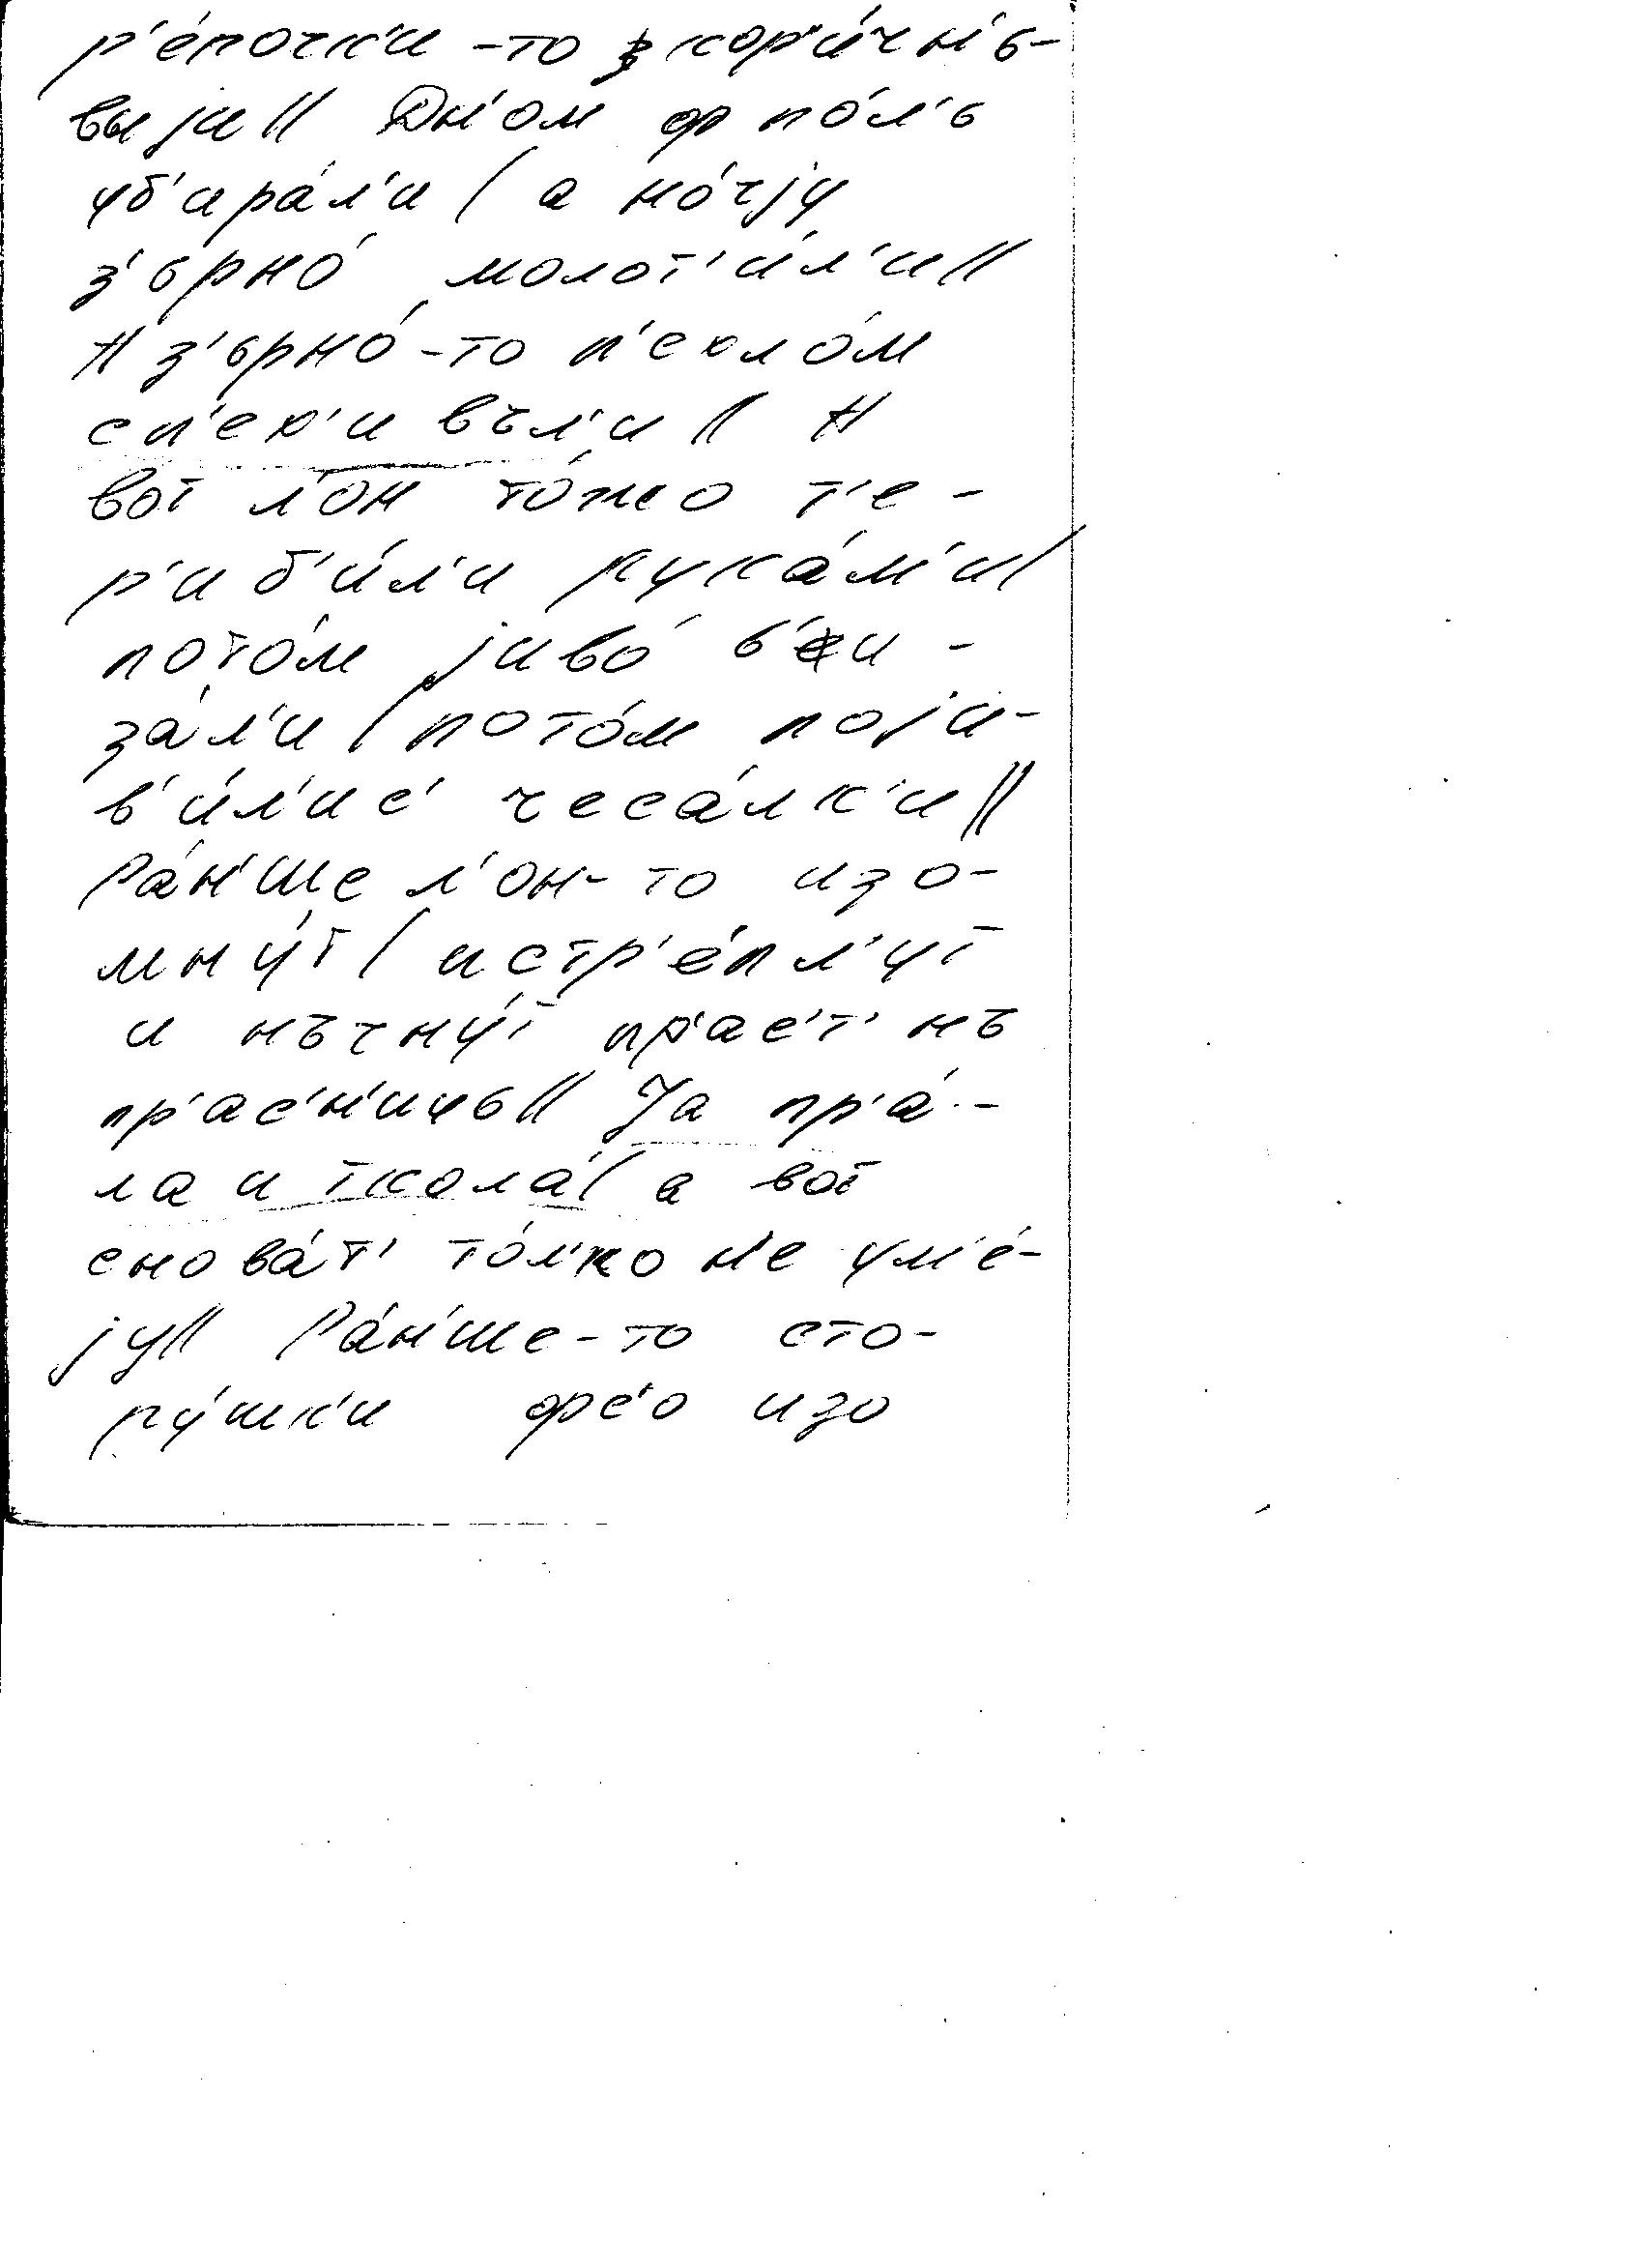 р'е́почк'и -то кор'и́чн'ь-
выjи// Дн'ом ф по́л'ь
уб'ира́л'и / а но́чjу
з'ьрно́ молот'и́л'и//
А з'ьрно́-то п'ехло́м
сп'ех'ивъл'и// А
вот л'он то́жо т'е-
р'иб'и́л'и рука́м'и/
пото́м jиво́ в'и-
за́л'и / пото́м поjи-
в'и́л'ис' чеса́лк'и//
Ра́н'ше л'он-то изо-
мну́т / истр'е́пл'ут
и нъчну́т пр'ас'т' нъ
пр'ас'н'иць// Jа пр'а́-
ла и ткала́/ а вот
снова́т' то́л'ко н'е ум'е́-
jу// Ра́н'ше-то сто-
ру́шк'и фс'о изо